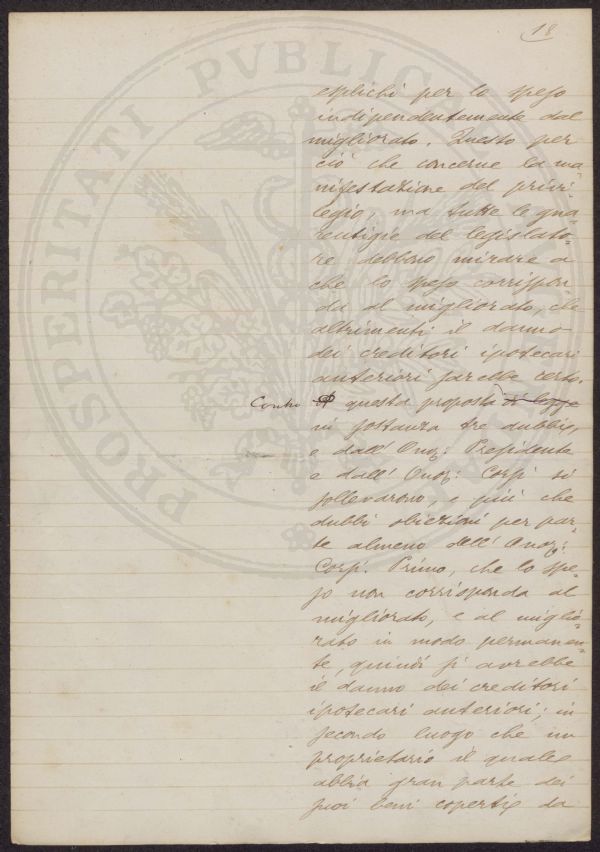 18
esplichi per lo speso
indipendentemente dal
migliorato. Questo per
ciò che concerne la ma=
nifestazione del privi=
legio, ma tutte le gua=
rentigie del legislato=
re debbono mirare a
che lo speso corrispon=
da al migliorato, che
altrimenti il danno
dei creditori ipotecari
anteriori sarebbe certo.
Contro questa proposta di legge
in sostanza tre dubbi,
e dall' Onor: Presidente
e dall' Onor: Corsi si
sollevarono, e più che
dubbi obiezioni per par=
te almeno dell' Onor:
Corsi. Primo, che lo spe=
so non corrisponda al
migliorato, e al miglio=
rato in modo permanen=
te, quindi si avrebbe
il danno dei creditori
ipotecari anteriori; in
secondo luogo che un
proprietario il quale
abbia gran parte dei
suoi beni coperti da
PROSPERITATI PVBLICAE